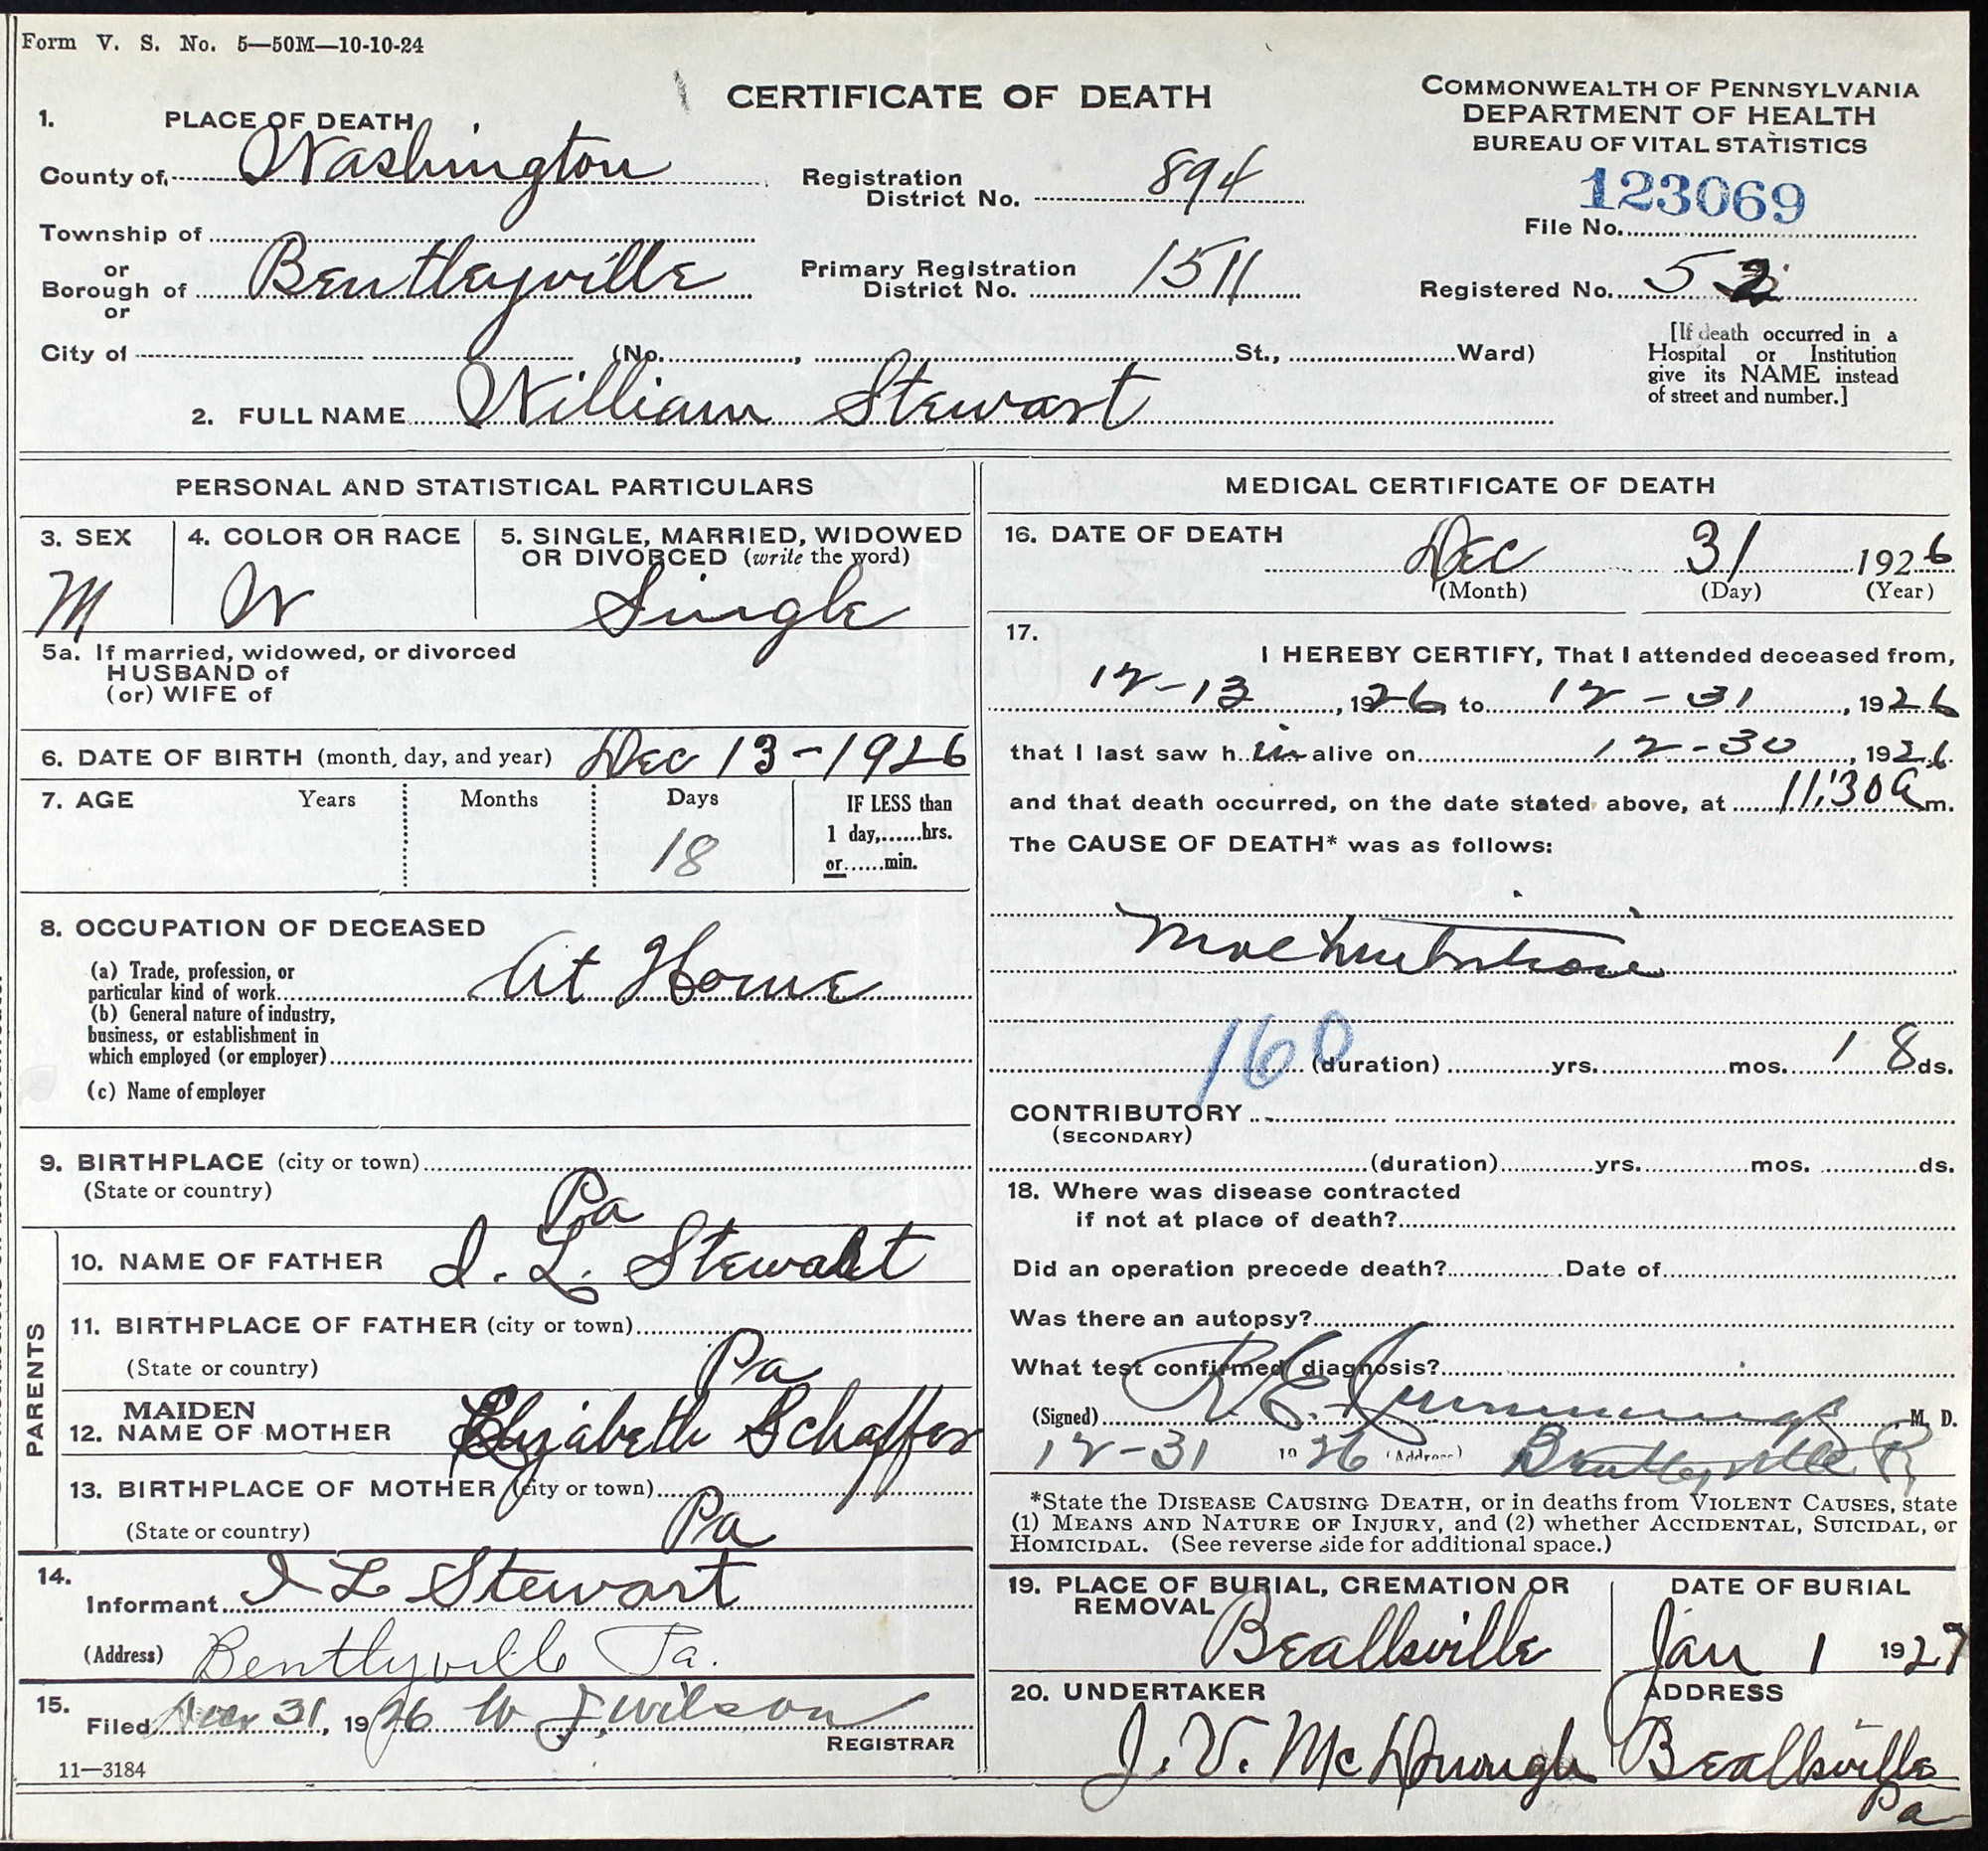 Form V. S. No. 5—50M—10-10-24
CERTIFICATE OF DEATH
COMMONWEALTH OF PENNSYLVANIA
DEPARTMENT OF HEALTH
BUREAU OF VITAL STATISTICS
1. PLACE OF DEATH
County of Washington
Registration District No. 894
123069
File No.
Township of
or
Borough of Bentleyville
or
Primary Registration District No. 1511
Registered No. 52
City of (No. , St., Ward)
[If death occurred in a
Hospital or Institution
give its NAME instead
of street and number.]
2. FULL NAME William Stewart
PERSONAL AND STATISTICAL PARTICULARS
3. SEX
M
4. COLOR OR RACE
W
5. SINGLE, MARRIED, WIDOWED
OR DIVORCED (write the word)
Single
5a. If married, widowed, or divorced
HUSBAND of
(or) WIFE of
6. DATE OF BIRTH (month, day, and year) Dec 13-1926
7. AGE Years Months Days
18
IF LESS than
1 day,......hrs.
or......min.
8. OCCUPATION OF DECEASED
(a) Trade, profession, or
particular kind of work At Home
(b) General nature of industry,
business, or establishment in
which employed (or employer)
(c) Name of employer
9. BIRTHPLACE (city or town)
(State or country) Pa
PARENTS
10. NAME OF FATHER I. L. Stewart
11. BIRTHPLACE OF FATHER (city or town)
(State or country) Pa
12. MAIDEN NAME OF MOTHER Elizabeth Schaffer
13. BIRTHPLACE OF MOTHER (city or town)
(State or country) Pa
14.
Informant I L Stewart
(Address) Bentlyville Pa.
15.
Filed Dec 31, 1926 W J Wilson
REGISTRAR
11—3184
MEDICAL CERTIFICATE OF DEATH
16. DATE OF DEATH
Dec 31 1926
(Month) (Day) (Year)
17.
I HEREBY CERTIFY, That I attended deceased from,
12-13, 1926 to 12-31, 1926
that I last saw h im alive on 12-30, 1926
and that death occurred, on the date stated above, at 11:30 A m.
The CAUSE OF DEATH* was as follows:
Malnutrition
160
(duration) yrs. mos. 18 ds.
CONTRIBUTORY
(SECONDARY)
(duration) yrs. mos. ds.
18. Where was disease contracted
if not at place of death?
Did an operation precede death? Date of
Was there an autopsy?
What test confirmed diagnosis?
(Signed) R. E. Cummings M. D.
12-31 1926 (Address) Bentleyville Pa
*State the DISEASE CAUSING DEATH, or in deaths from VIOLENT CAUSES, state
(1) MEANS AND NATURE OF INJURY, and (2) whether ACCIDENTAL, SUICIDAL, or
HOMICIDAL. (See reverse side for additional space.)
19. PLACE OF BURIAL, CREMATION OR
REMOVAL
Beallsville
DATE OF BURIAL
Jan 1 1927
20. UNDERTAKER
J. V. McDonough
ADDRESS
Beallsville
Pa